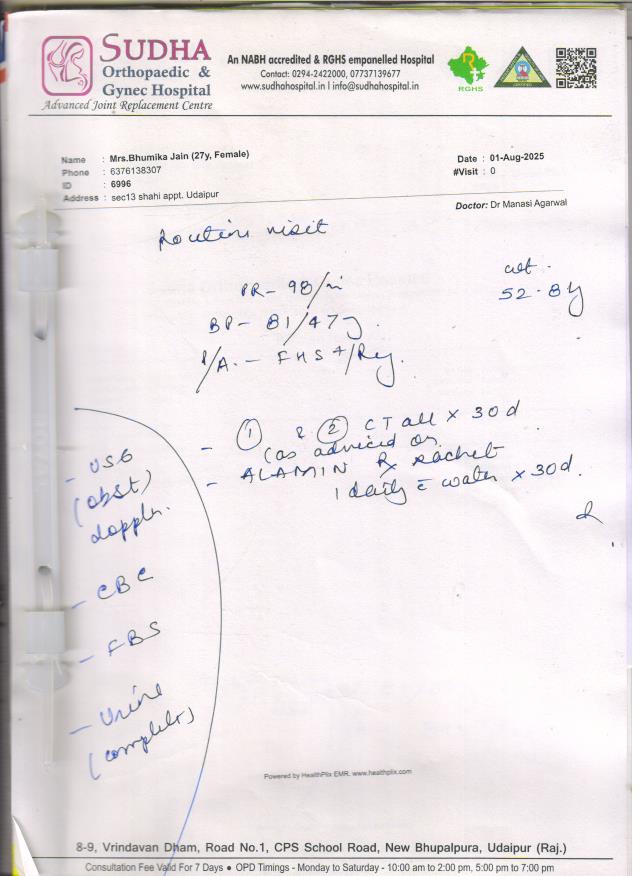 SUDHA
Orthopaedic &
Gynec Hospital
Advanced Joint Replacement Centre
An NABH accredited & RGHS empanelled Hospital
Contact: 0294-2422000, 07737139677
www.sudhahospital.in I info@sudhahospital.in
RGHS
Name : Mrs.Bhumika Jain (27y, Female)
Phone : 6376138307
ID : 6996
Address : sec13 shahi appt. Udaipur
Date : 01-Aug-2025
#Visit : 0
Doctor: Dr Manasi Agarwal
Routine visit
PR- 98/m
wt.
52.8
BP- 81/47
P/A. - FHS +/Reg.
- ① & ② CT all x 30d
(as adviced on
- ALAMIN Rx sachet
1 daily c̄ water x 30d.
- USG
(obst)
doppler.
- CBC
- FBS
- Urine
(complete)
Powered by HealthPlix EMR. www.healthplix.com
8-9, Vrindavan Dham, Road No.1, CPS School Road, New Bhupalpura, Udaipur (Raj.)
Consultation Fee Valid For 7 Days ● OPD Timings - Monday to Saturday - 10:00 am to 2:00 pm, 5:00 pm to 7:00 pm